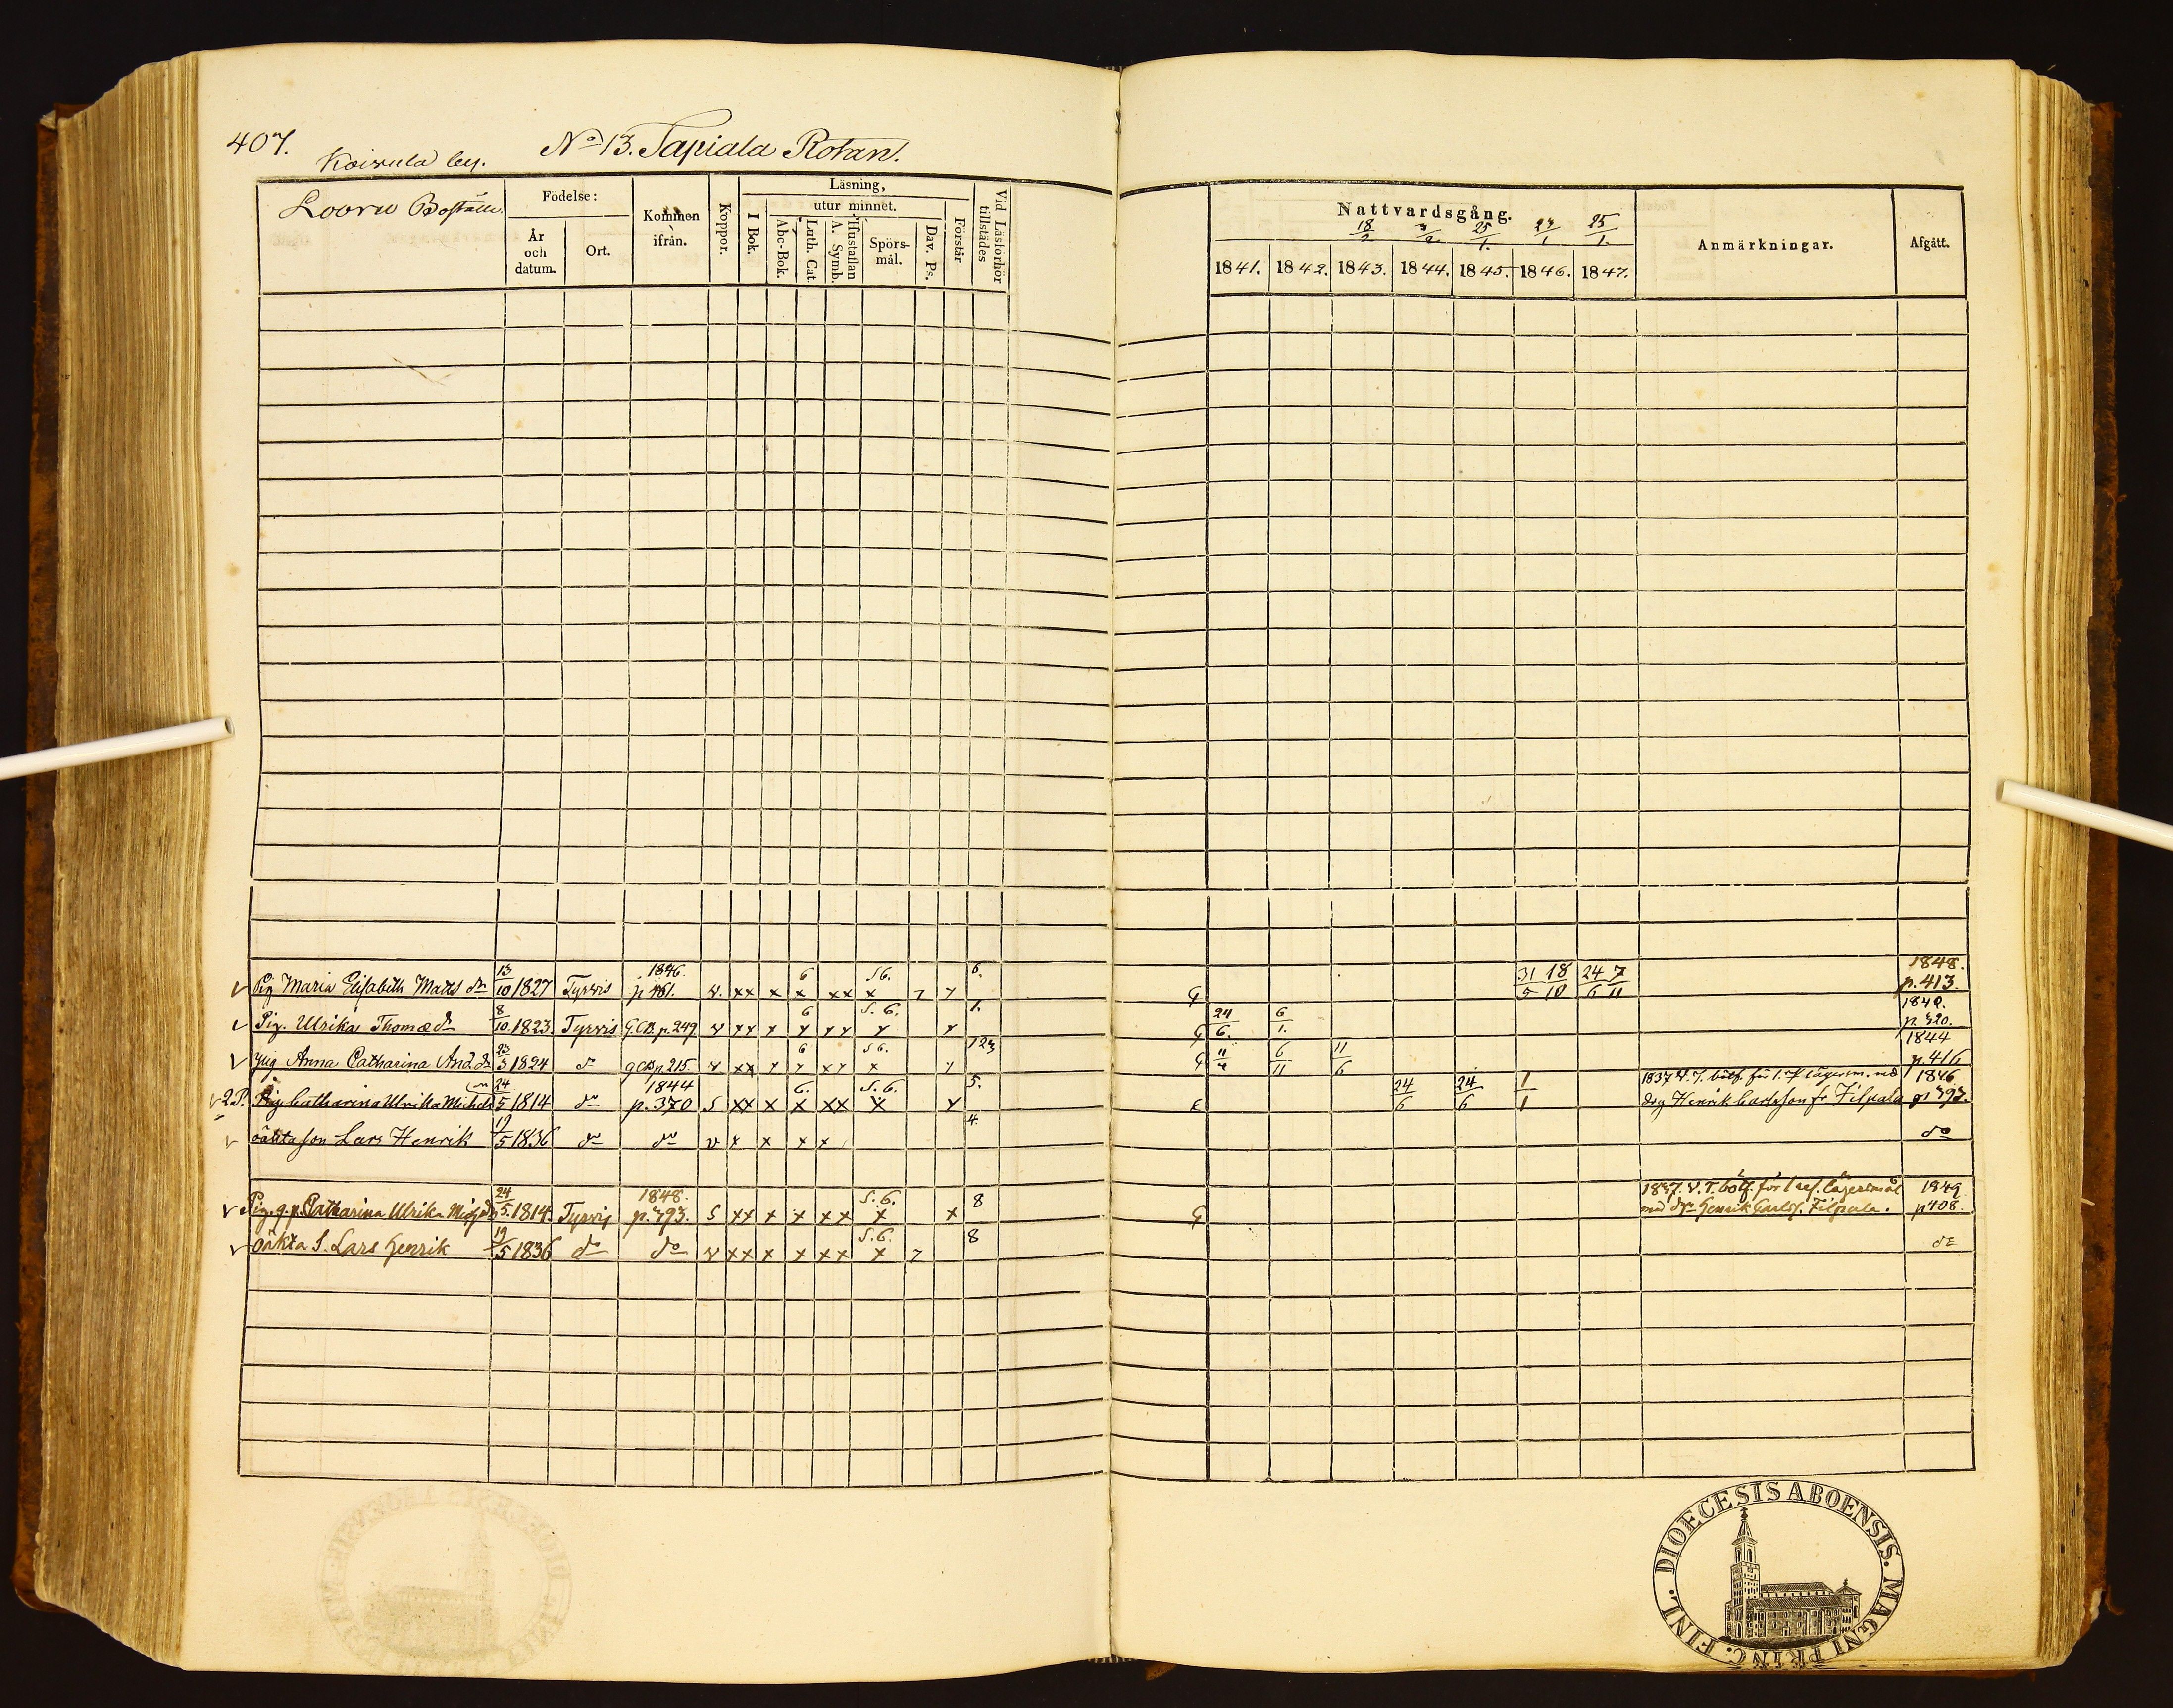 407.
No 13. Tapiala Rotan.
Looru Boställe.
Födelse:
År och datum.
Ort.
Kommen ifrån.
Koppor.
Läsning,
I Bok.
utur minnet.
Abc-Bok.
Luth. Cat.
Hustaflan A. Symb.
Spörsmål.
Dav. Ps.
Förstår
Vid Läsförhör tillstädes
Nattvardsgång.
18/2 25/1. 24/1 25/1.
1841. 1842. 1843. 1844. 1845. 1846. 1847.
Anmärkningar.
Afgått.
Pig Maria Elisabeth Matts dr 13/10 1827 Tyrvis 1846. p 461. v. xx x 6 x xx S6. x 7 y 6. G 31/5 18/10 24/6 7/11 1848. p. 413.
Pig. Ulrika Thomædr 8/10. 1823 Tyrvis G.CB. p. 249 v xx x 6 x xx S. 6. x x 1. G 24/6. 6/1. p. 320.
Pig Anna Catharina And. dr 23/3 1824 do g CB p 215. v xx x 6 x xx S6. x y 123 G 6/11 11/6 1844 p. 416
2 P. Pig Catharina Ulrika Michdr 24/5 1814 do 1844 p. 370 S xx x 6. x xx S. 6. x y 5. 24/6 24/6 1/1 1837 V. T. bötf. för 1. lägersm. med drg Henrik Carlsson fr. Filpala 1846 p. 393.
oäkta son Lars Henrik 19/5 1836 do do v x x x x 4. do
Pig. g. p. Catharina Ulrika Michdr 24/5 1814. Tyrvis 1848. p. 393. S xx x x xx S. 6. x x 8 G 1837. V. T. bötf. för 1 res. lägersmål med drg Henrik Carlss. Filpula. 1849 p 408.
oäkta S. Lars Henrik 19/5 1836 do do v xx x x xx S. 6. x 7 8 do
DIOECESIS ABOENSIS. MAGNI PRINC. FINL.